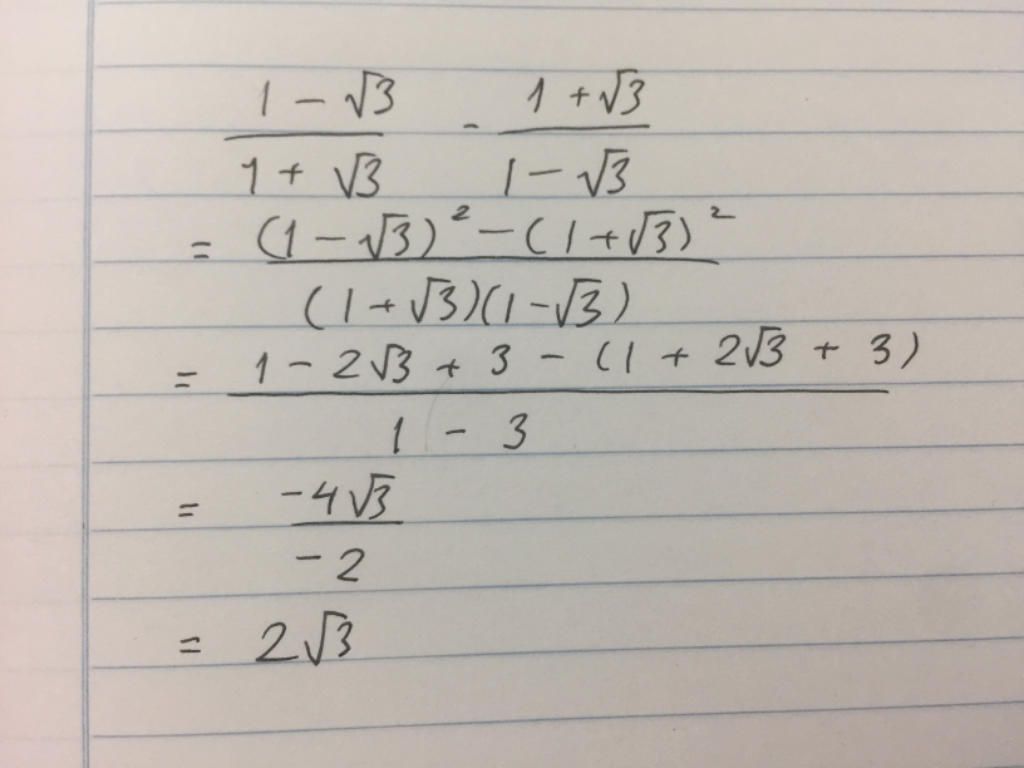 1 - √3 / 1 + √3 - 1 + √3 / 1 - √3
= (1 - √3)² - (1 + √3)² / (1 + √3)(1 - √3)
= 1 - 2√3 + 3 - (1 + 2√3 + 3) / 1 - 3
= -4√3 / -2
= 2√3